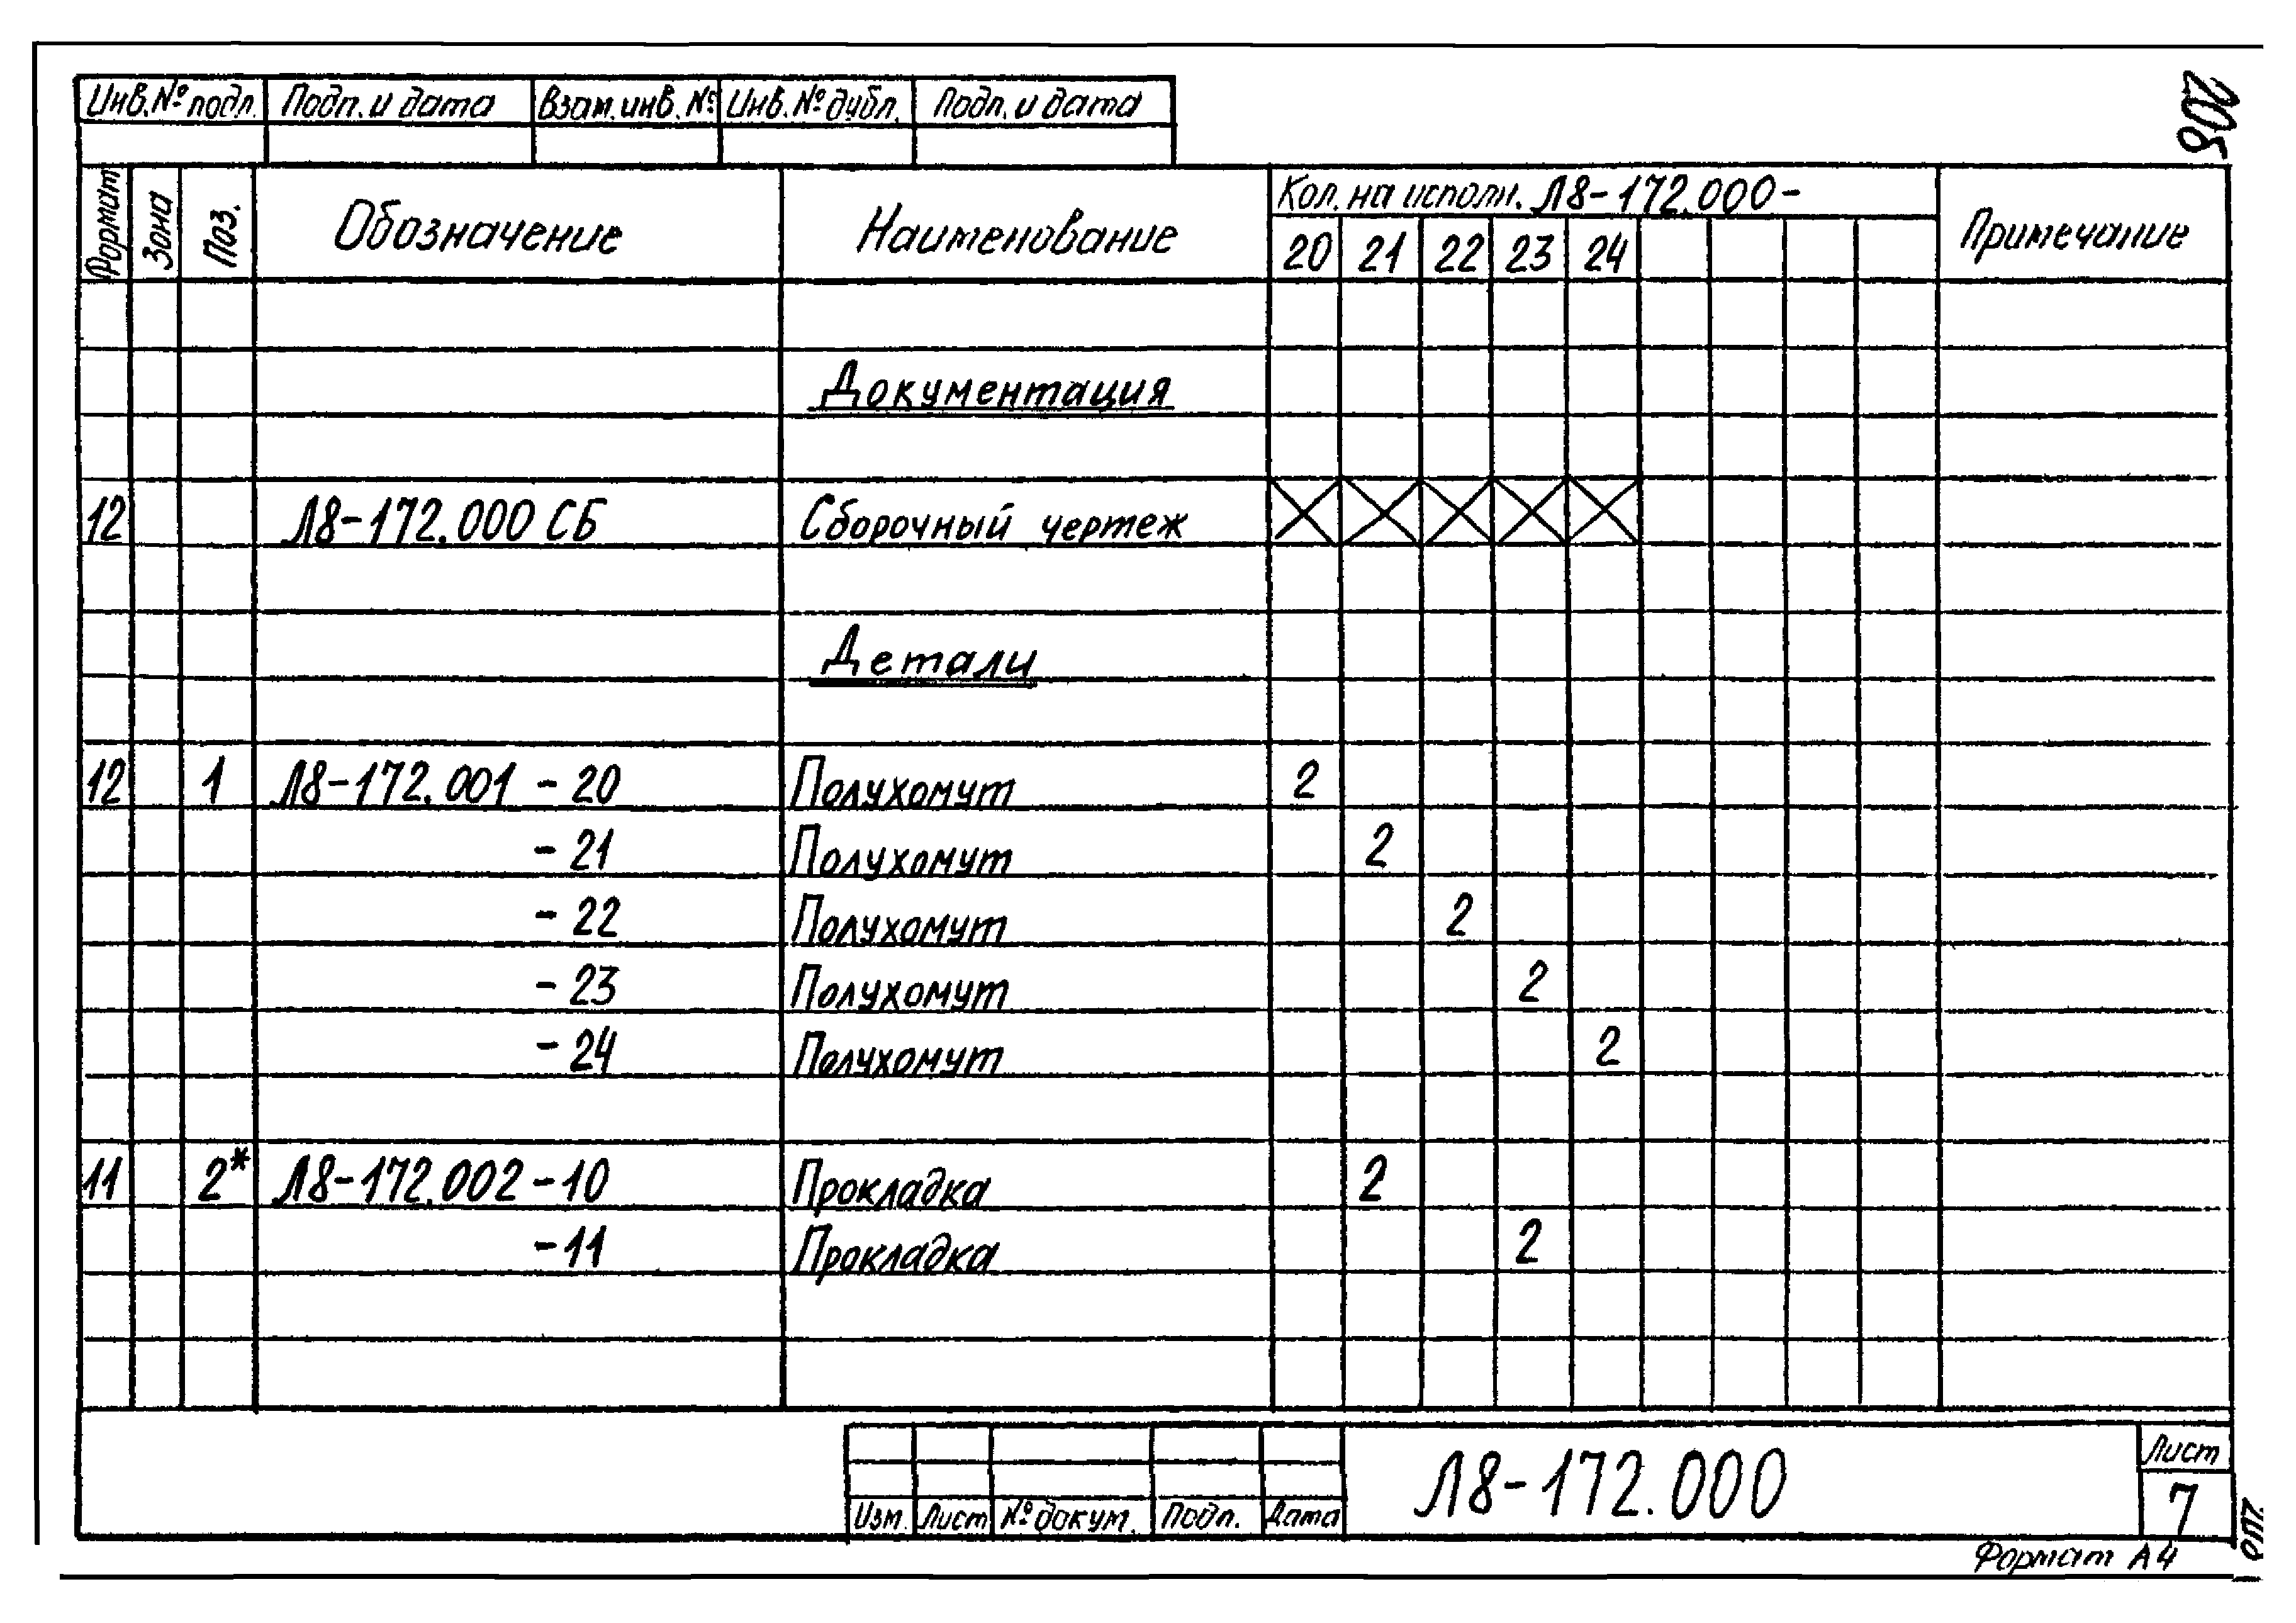 208
Инв.№ подл. Подп. и дата Взам.инв.№ Инв.№ дубл. Подп. и дата
Формат Зона Поз. Обозначение Наименование Кол. на исполн. Л8-172.000- Примечание
20 21 22 23 24
Документация
12 Л8-172.000 СБ Сборочный чертеж
Детали
12 1 Л8-172.001 - 20 Полухомут 2
- 21 Полухомут 2
- 22 Полухомут 2
- 23 Полухомут 2
- 24 Полухомут 2
11 2* Л8-172.002 - 10 Прокладка 2
- 11 Прокладка 2
Изм. Лист № докум. Подп. Дата
Л8-172.000
Лист
7
Формат А4